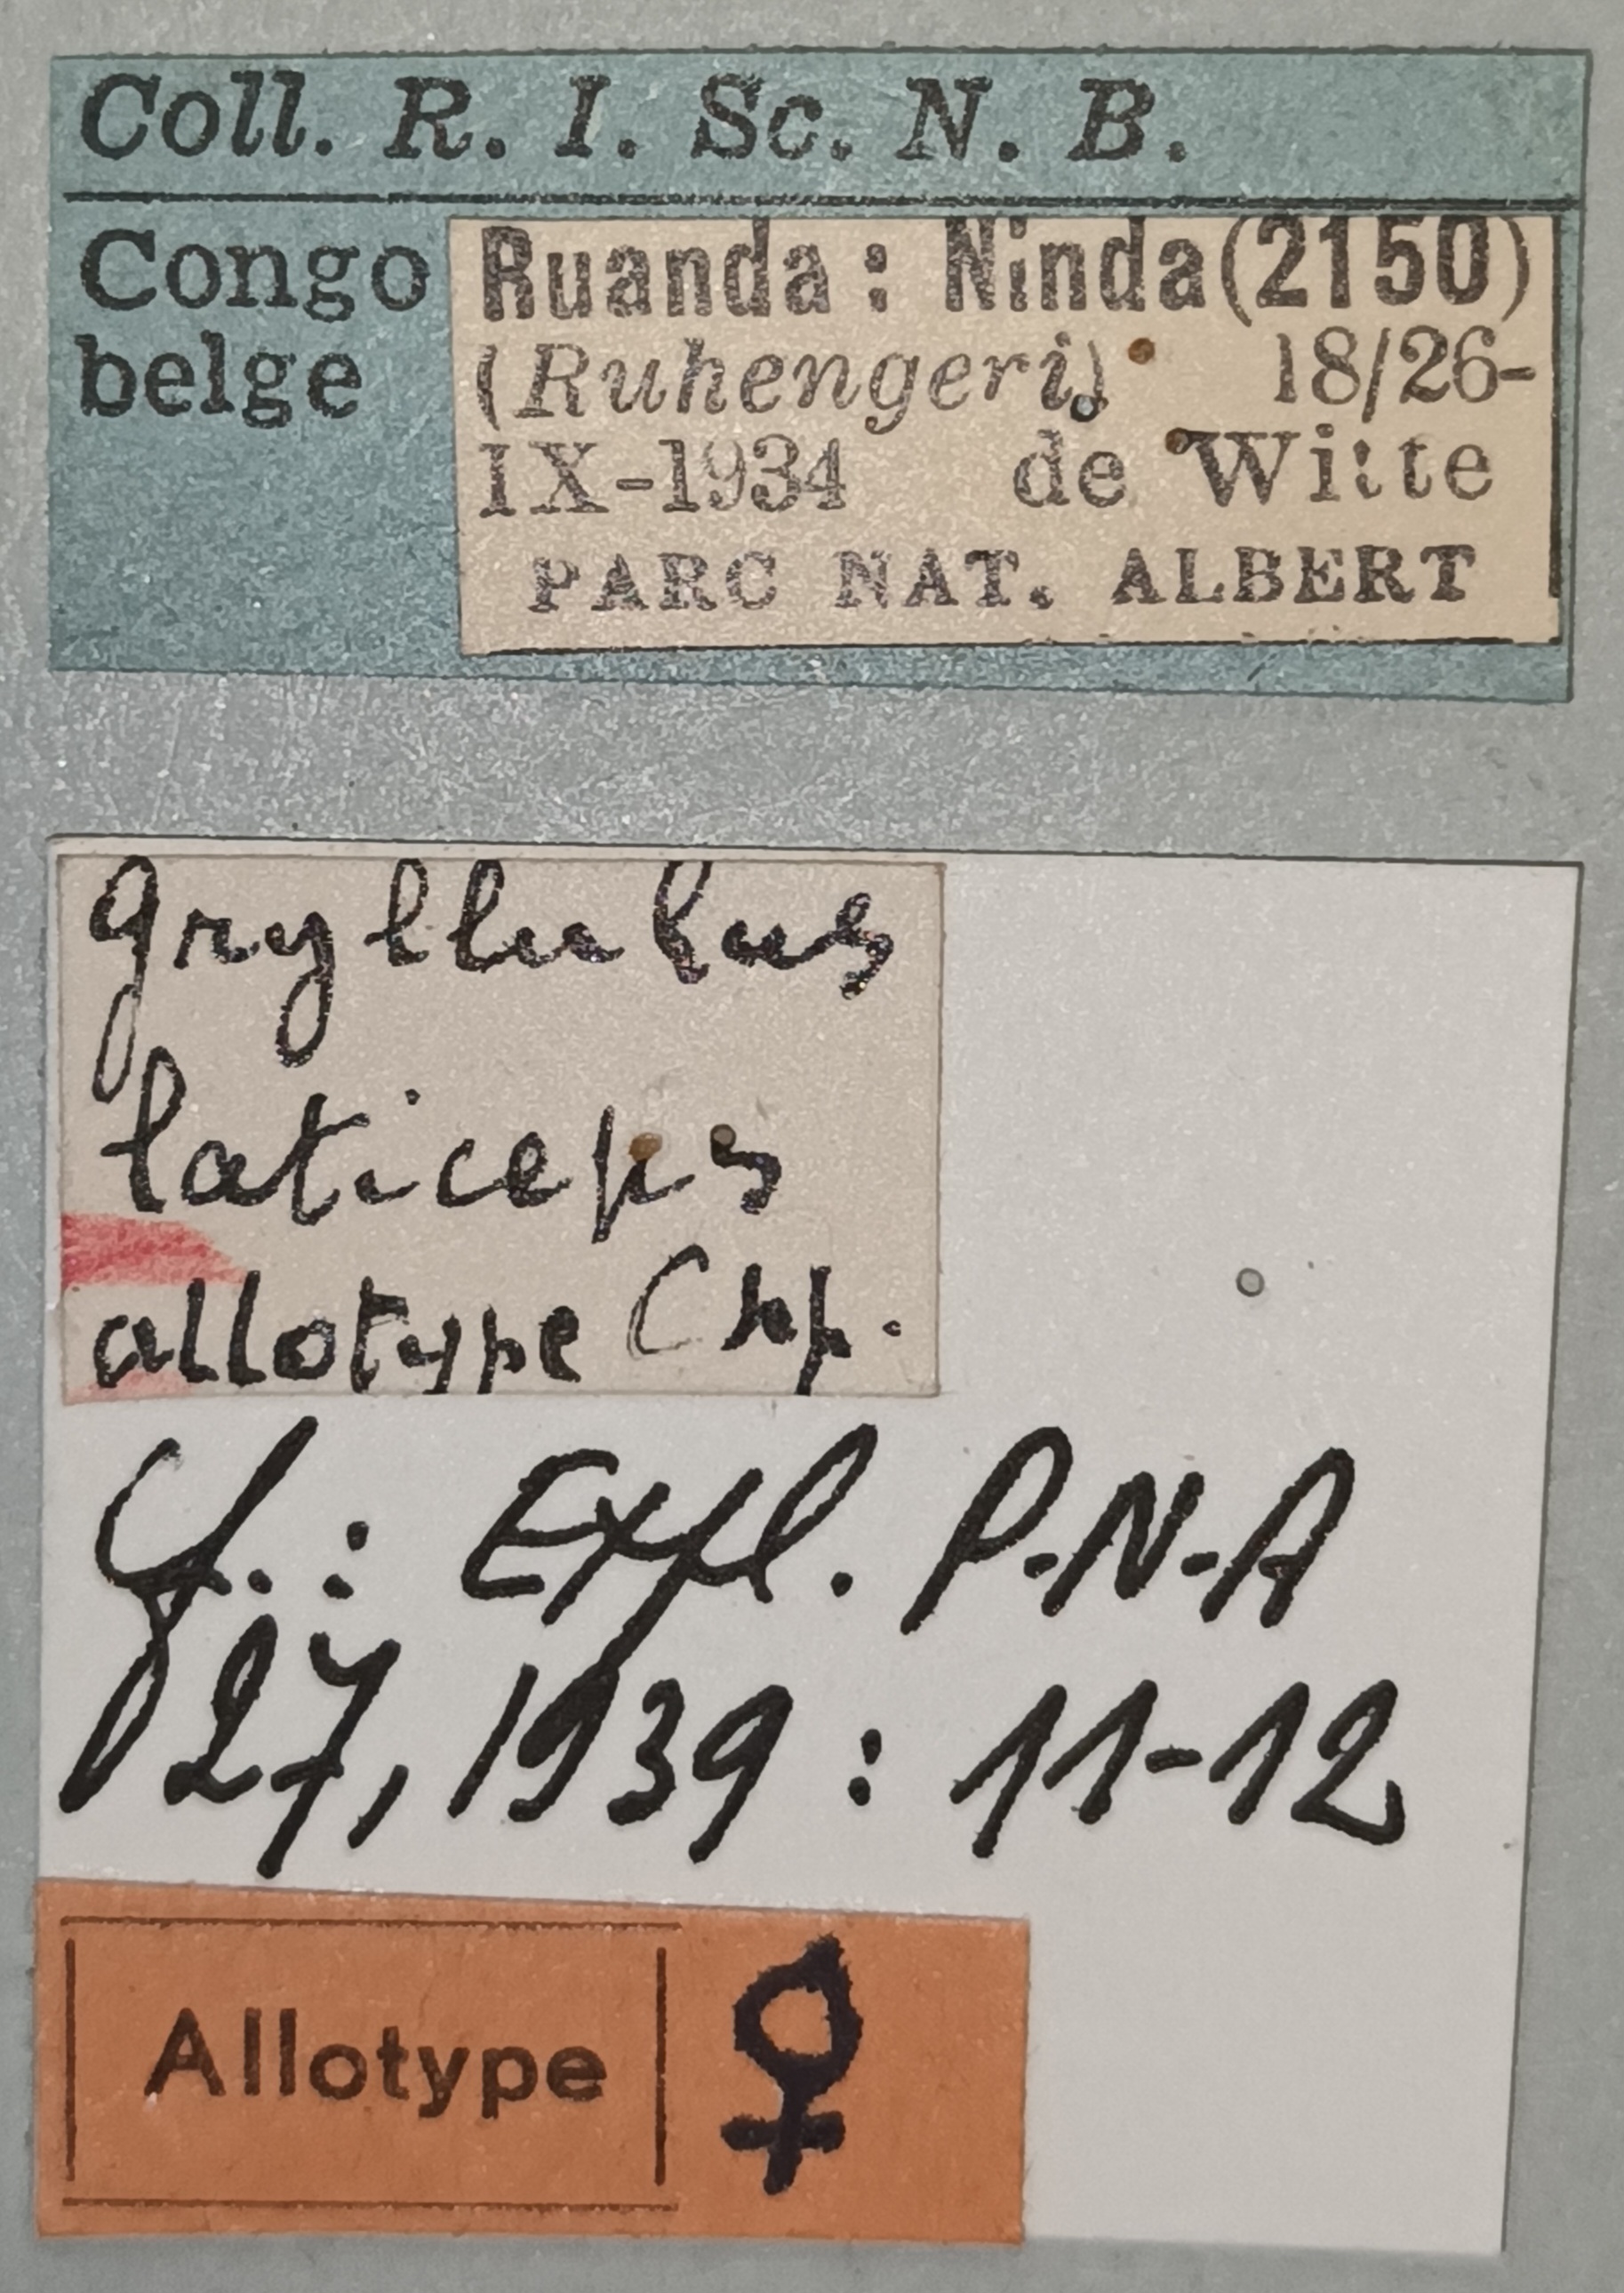 Coll. R. I. Sc. N. B.
Congo
belge
Ruanda : Ninda (2150)
(Ruhengeri) 18/26-
IX-1934 de Witte
PARC NAT. ALBERT
gryllulus
laticeps
allotype Chp.
Cf. : Expl. P-N-A
27, 1939 : 11-12
Allotype ♀